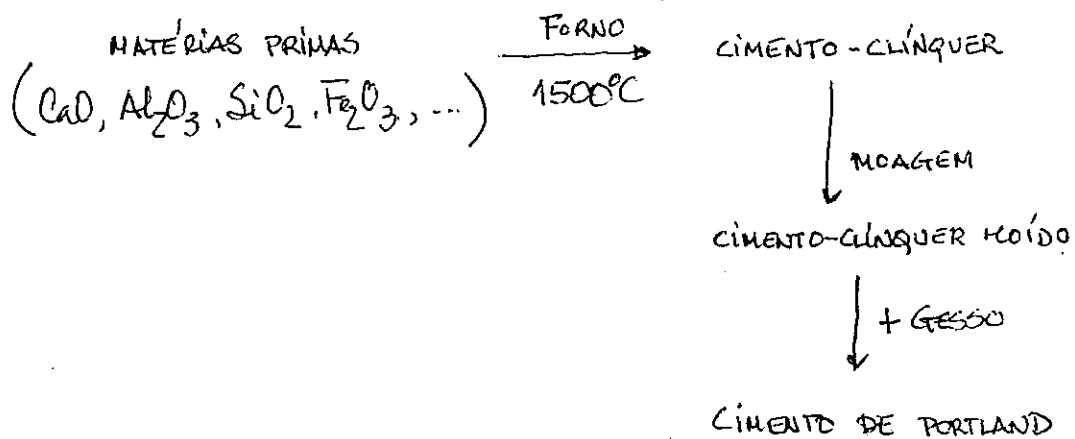 MATÉRIAS PRIMAS
(CaO, Al₂O₃, SiO₂, Fe₂O₃, ...)
FORNO
1500°C
CIMENTO-CLÍNQUER
MOAGEM
CIMENTO-CLÍNQUER MOÍDO
+ GESSO
CIMENTO DE PORTLAND